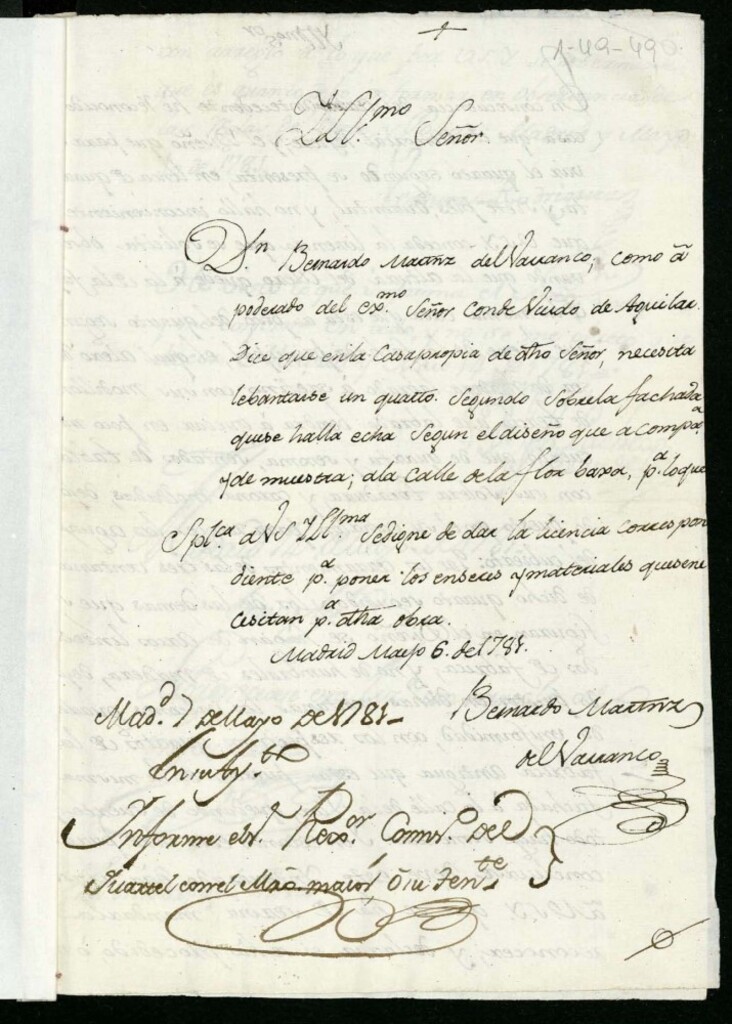 +
1-49-490.
Yll.mo Señor
D.n Bernardo Martñz del Varranco, como ã
poderado del ex.mo Señor Conde Viudo de Aguilar.
Dice que en la Casa propia de dho Señor, necesita
lebantarse un quarto Segundo Sobre la fachada
que se halla echa Segun el diseño que acompa.a
y de muestra; a la Calle de la flor baxa, p.a lo que
Sp.lca a VS Yll.ma Se digne de dar la licencia correspon
diente p.a poner los enseres y materiales que se ne
cesitan p.a dha obra.
Madrid Mayo 6. de 1781.
Bernardo Martñz
del Varranco
Mad.d 7 de Mayo de 1781
En su Ay.to
Informe el s.r Rex.or Comis.o del
Quartel con el Mro. maior ô su then.te